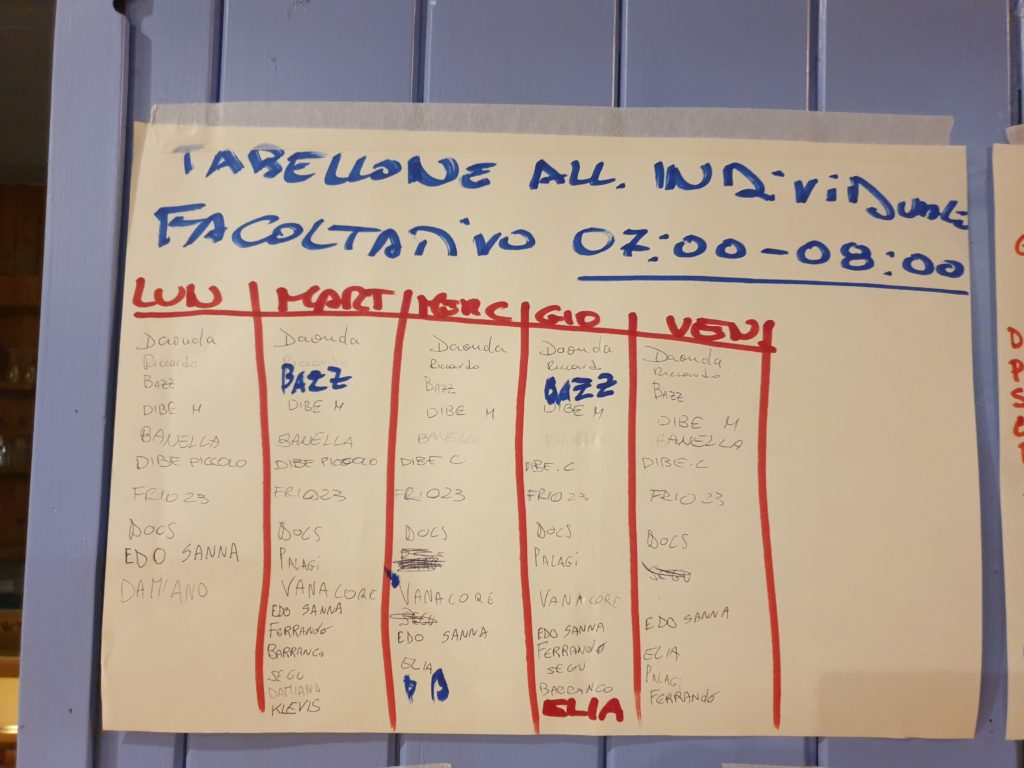 TABELLONE ALL. INDIVIDUALE
FACOLTATIVO 07:00-08:00
LUN MART MERC GIO VEN
Daouda Daouda Daouda Daouda Daouda
Riccardo Riccardo Riccardo Riccardo Riccardo
BAZZ BAZZ BAZZ BAZZ BAZZ
DIBE M DIBE M DIBE M DIBE M DIBE M
BANELLA BANELLA BANELLA BANELLA BANELLA
DIBE PICCOLO DIBE PICCOLO DIBE C. DIBE.C DIBE.C
FRIO23 FRIO23 FRIO23 FRIO23 FRIO23
DOCS DOCS DOCS DOCS DOCS
EDO SANNA PALAGI PALAGI SEGU
DAMIANO VANACORE VANACORE VANACORE
EDO SANNA SEGU EDO SANNA EDO SANNA
FERRANDO EDO SANNA FERRANDO
BARRANCO ELIA SEGU ELIA
SEGU BARRANCO PALAGI
DAMIANO ELIA FERRANDO
KLEVIS